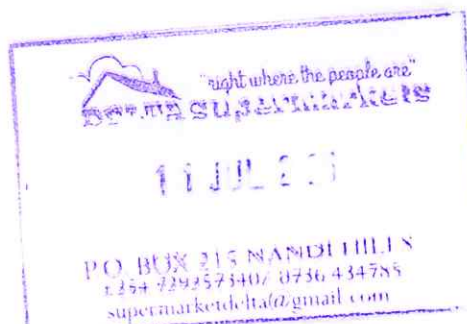 "right where the people are"
DELTA SUPERMARKETS
11 JUL
P.O. BOX 215 NANDI HILLS
0736 434785
supermarketdelta@gmail.com